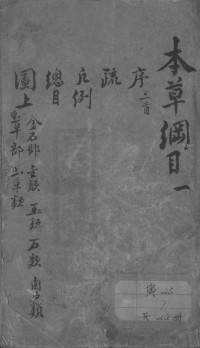 本草綱目一
序二首
疏
凡例
總目
圖上
金石部 金類 玉類 石類 鹵石類
草部 山草類